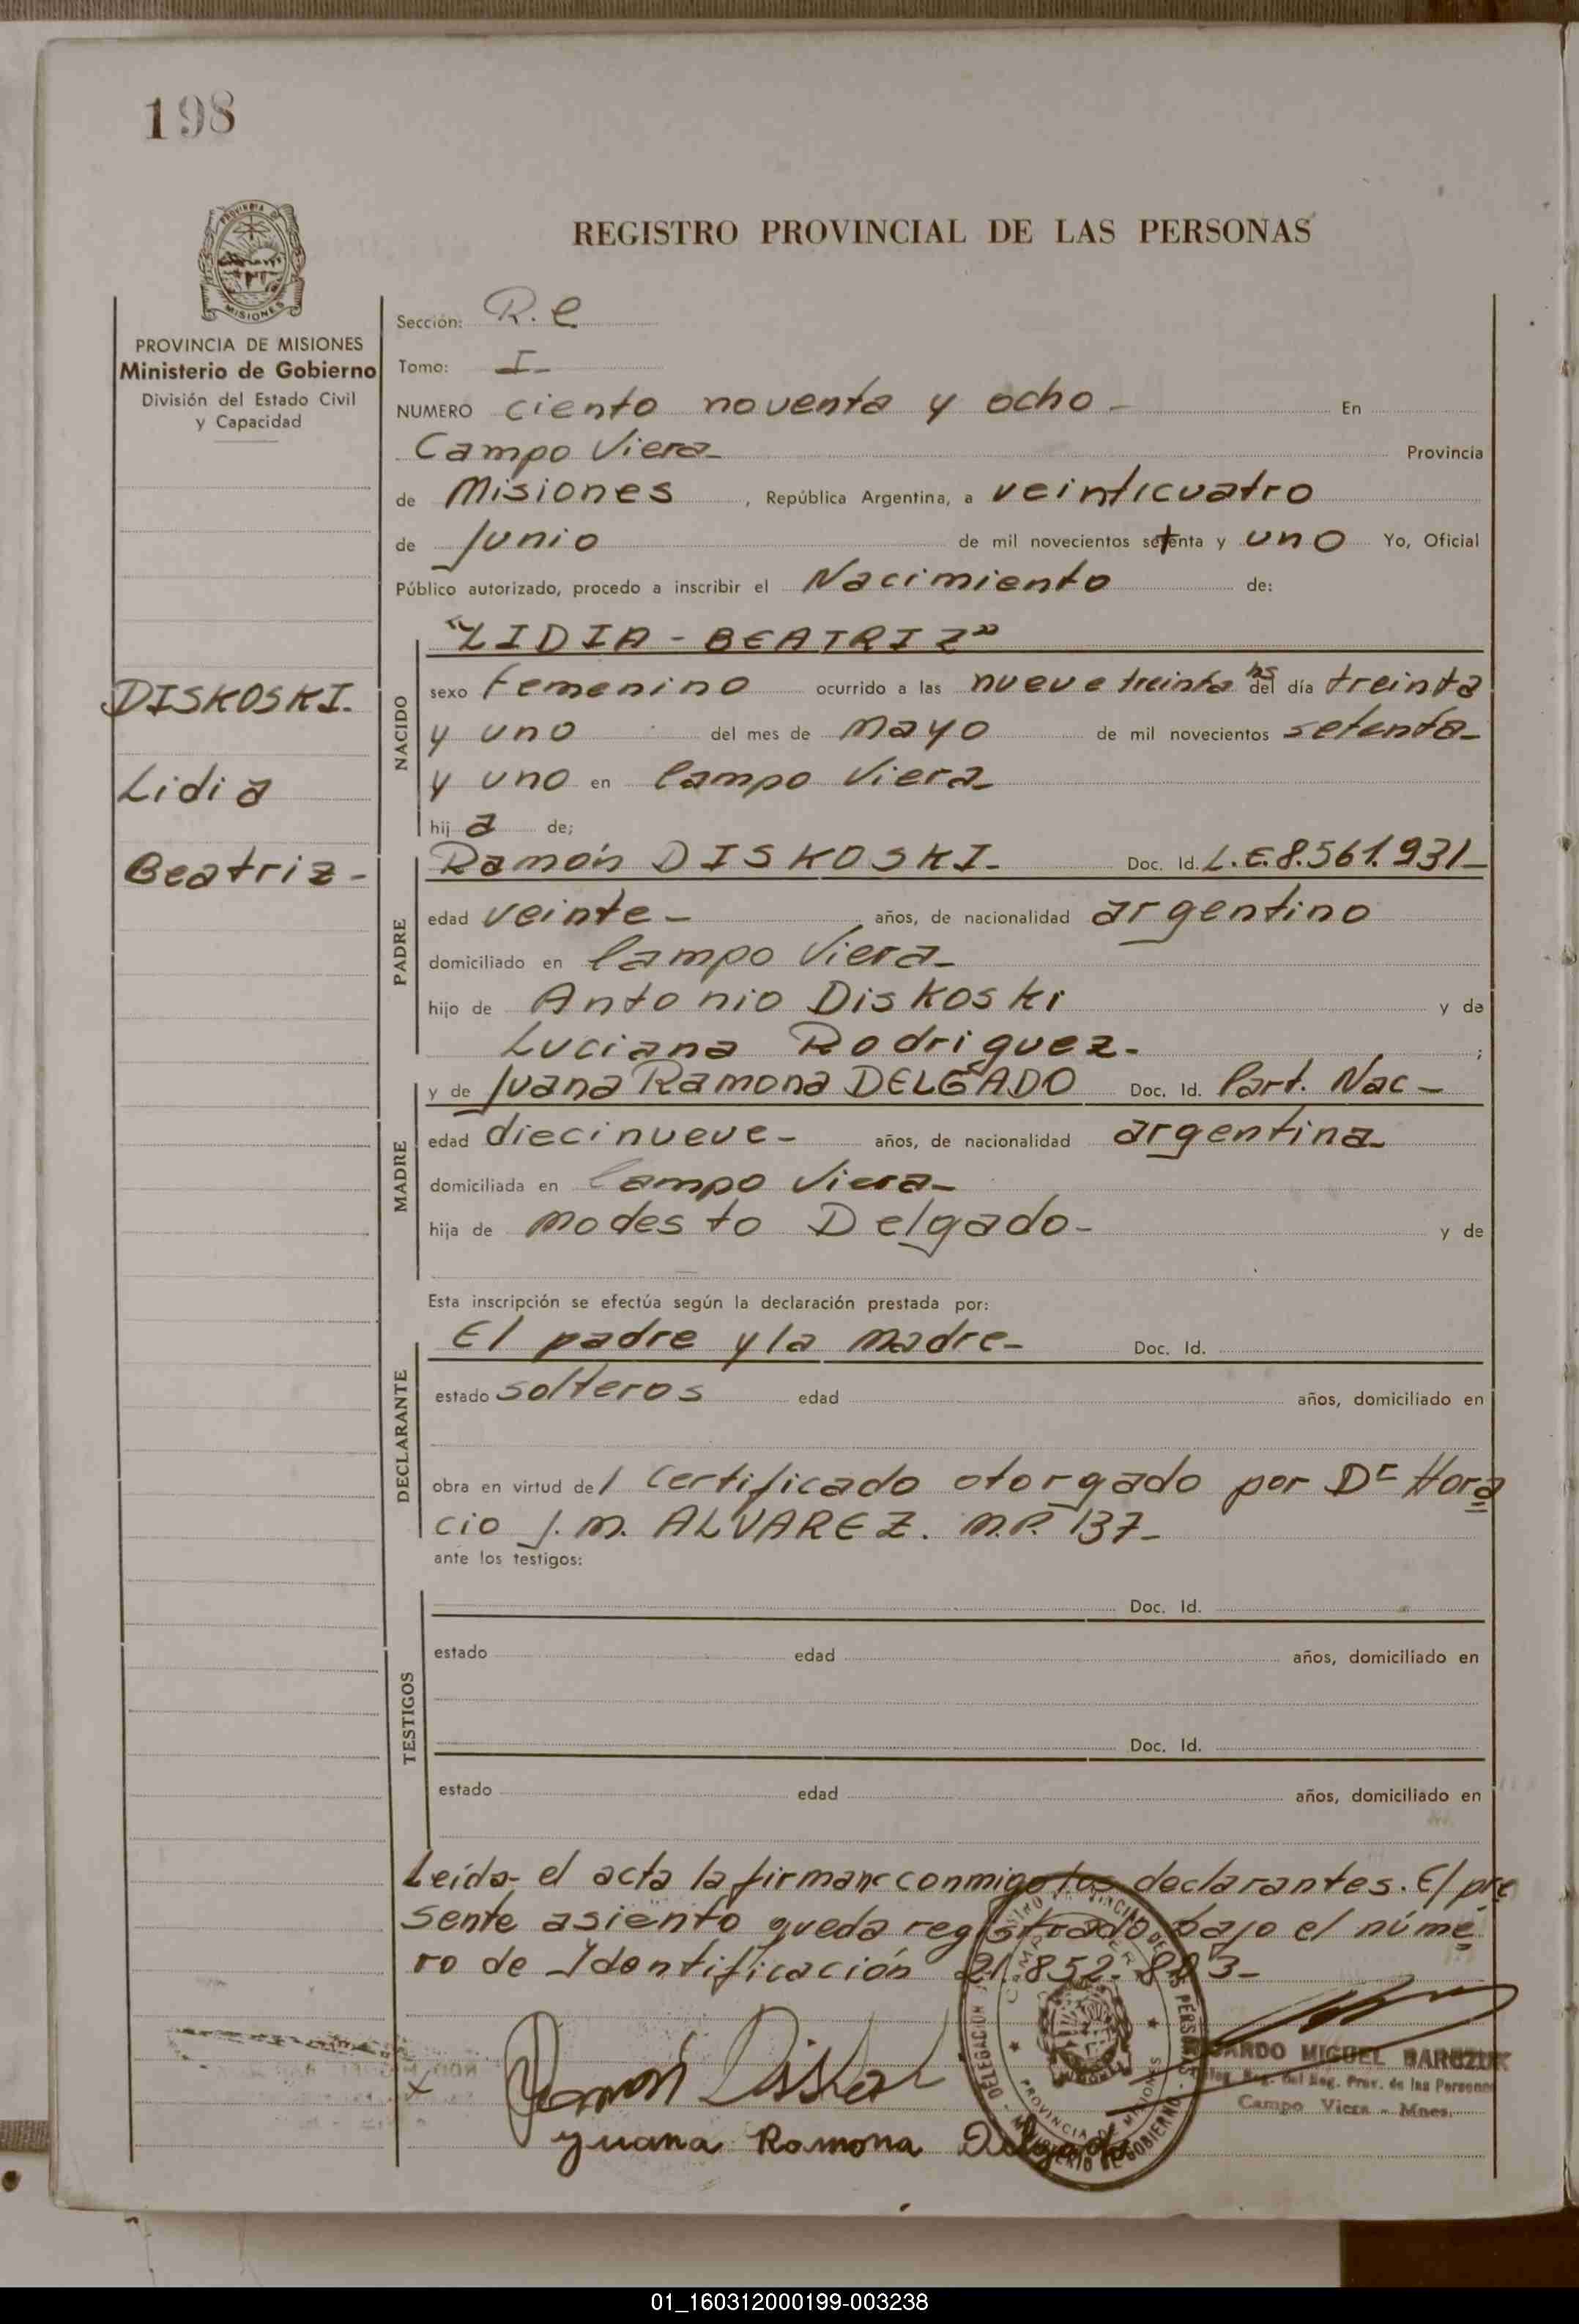 198
REGISTRO PROVINCIAL DE LAS PERSONAS
PROVINCIA DE MISIONES
Ministerio de Gobierno
División del Estado Civil
y Capacidad
DISKOSKI.
Lidia
Beatriz-
Sección: R.C
Tomo: I-
NUMERO ciento noventa y ocho- En
Campo Viera- Provincia
de Misiones, República Argentina, a veinticuatro
de Junio de mil novecientos setenta y uno Yo, Oficial
Público autorizado, procedo a inscribir el Nacimiento de:
"LIDIA - BEATRIZ"
NACIDO
sexo femenino ocurrido a las nueve treinta hs del día treinta
y uno del mes de Mayo de mil novecientos setenta-
y uno en Campo Viera-
hij a de;
PADRE
Ramón DISKOSKI- Doc. Id. L.E.8.561.931-
edad veinte- años, de nacionalidad argentino
domiciliado en Campo Viera-
hijo de Antonio Diskoski y de
Luciana Rodriguez- ;
MADRE
y de Juana Ramona DELGADO Doc. Id. Part. Nac-
edad diecinueve- años, de nacionalidad argentina-
domiciliada en Campo Viera-
hija de Modesto Delgado- y de
Esta inscripción se efectúa según la declaración prestada por:
DECLARANTE
El padre y la madre- Doc. Id.
estado solteros edad años, domiciliado en
obra en virtud del certificado otorgado por Dr Hora
cio J.M. ALVAREZ. M.P. 137-
ante los testigos:
TESTIGOS
Doc. Id.
estado edad años, domiciliado en
Doc. Id.
estado edad años, domiciliado en
Leída el acta la firman conmigo los declarantes. El pre
sente asiento queda registrado bajo el núme
ro de Identificación 21.852.803-
Ramón Diskos
Juana Ramona Delgado
MIGUEL BARCZUK
Reg. del Reg. Prov. de las Personas
Campo Viera - Mnes.
01_160312000199-003238